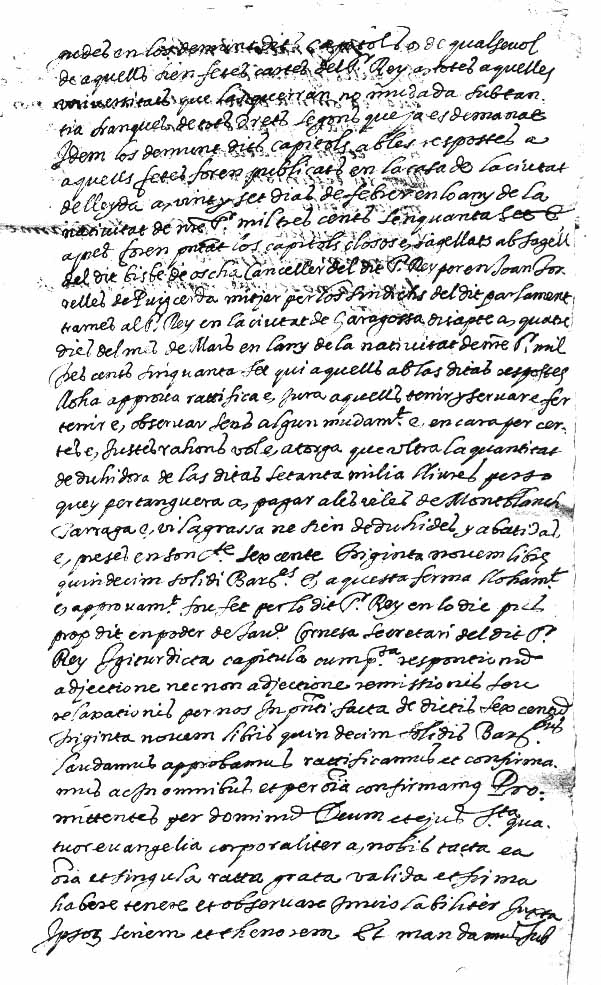 medes en los demunt dits capitols o de qualsevol
de aquells sien fetes cartes del Sr. Rey a totes aquelles
universitats que las querran no mudada substan
tia franques de tots drets segons que ja es demanat
Idem los demunt dits capitols ab les respostes a
aquells fetes foren publicats en la casa de la ciutat
de lleyda a, vint y set dias de febrer en lo any de la
nativitat de nre Sr. mil tres cents sinquanta set E
apres foren portat los capitols closos e, sagellats ab sagell
del dit bisbe de oscha Canceller del dit Sr. Rey per en Joan for
relles de Puigcerda mitjer per los sindichs del dit parlament
trames al Sr. Rey en la ciutat de Saragossa disapte a, quatre
dies del mes de Mars en lany de la nativitat de nre Sr. mil
tres cents sinquanta set qui aquells ab las ditas resposses
lloha approva rattifica e, Jura aquells tenir y servar e fer
tenir e, observar sens algun mudamt. e, encara per cer-
tes e, Justes rahons vole, atorga que ultra la quantitat
deduhidora de las ditas setanta milia lliures per so
que y pertanguera a, pagar a les viles de Montblanch
Tarraga e, vilagrassa ne sien deduhides y abatidas
e, preses en son cte. sexcente triginta novem libre
quindecim solidi Bars. E aquesta ferma llohamt.
e, approvamt. fou fet per lo dit Sr. Rey en lo die
prop dit en poder de Jau. Conesa Secretari del dit Sr.
Rey Igitur dicta capitula cum pta. responcionid
adjectione nec non adjectione remissionis seu
relaxationis per nos In pnti facta de dictis sexcentis
triginta novem libris quindecim solidis Bar.
laudamus approbamus rattificamus et confirma-
mus ac In omnibus et per oia confirmamq Pro-
mittentes per dominum Deum et ejus Sta. qua-
tuor evangelia corporaliter a, nobis tacta ea
oia et singula ratta grata valida et firma
habere tenere et observare Inviolabiliter Juxta
Ipsoz seriem et thenorem Et mandamus sub